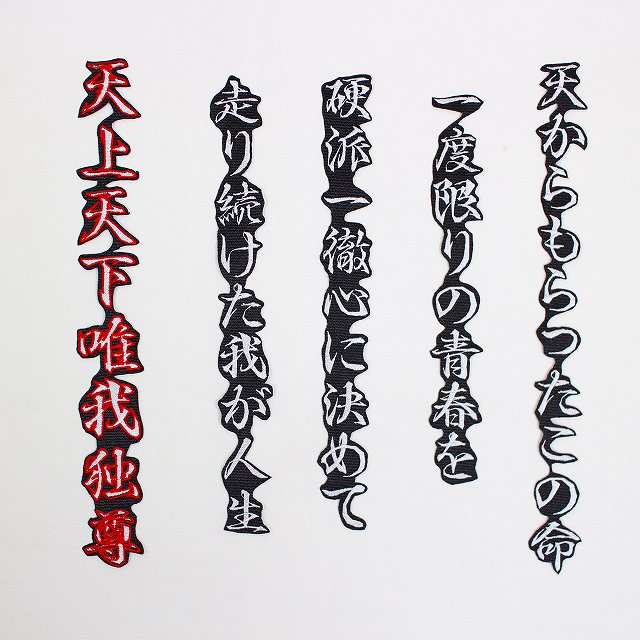 天からもらつたこの命
一度限りの青春を
硬派一徹心に決めて
走り続けた我が人生
天上天下唯我独尊